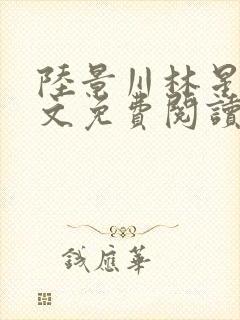 陸景川林星
文免費閱讀
錢應華